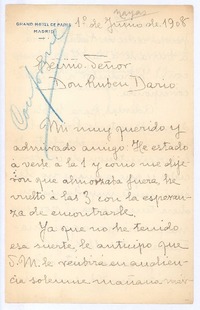 GRAND HOTEL DE PARIS
MADRID
1º de Junio de 1908
Excmo. Señor
Don Ruben Dario
Mi muy querido y
admirado amigo. He estado
a verle a la 1 y como me dije-
ron que almorzaba fuera, he
vuelto a las 3 con la esperan-
za de encontrarle.
Ya que no he tenido
esa suerte, le anticipo que
S. M. le recibirá en audien-
cia solemne mañana mar-